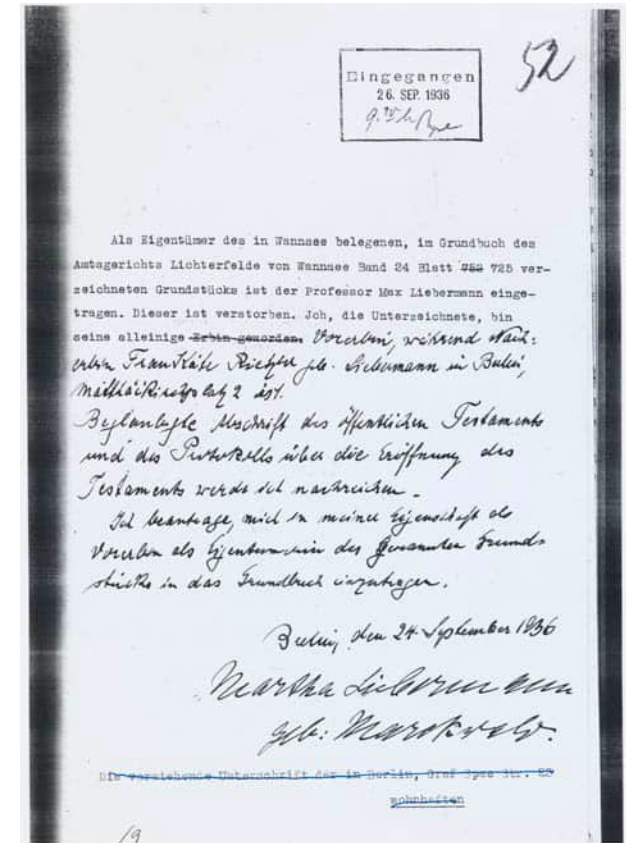 52
Eingegangen
26. SEP. 1936
Als Eigentümer des in Wannsee belegenen, im Grundbuch des
Amtsgerichts Lichterfelde von Wannsee Band 24 Blatt 752 725 ver-
zeichneten Grundstücks ist der Professor Max Liebermann einge-
tragen. Dieser ist verstorben. Jch, die Unterzeichnete, bin
seine alleinige Erbin geworden. Vorerbin, während Nach:
erbin Frau Käte Riezler geb. Liebermann in Berlin,
Matthäikirchplatz 2 ist.
Beglaubigte Abschrift des öffentlichen Testaments
und des Protokolls über die Eröffnung des
Testaments werde ich nachreichen.
Ich beantrage, mich in meiner Eigenschaft als
Vorerbin als Eigentümerin des genannten Grund-
stücks in das Grundbuch einzutragen.
Berlin, den 24. September 1936
Martha Liebermann
geb: Marckwald.
Die vorstehende Unterschrift der in Berlin, Graf Spee Str. 23
wohnhaften
19